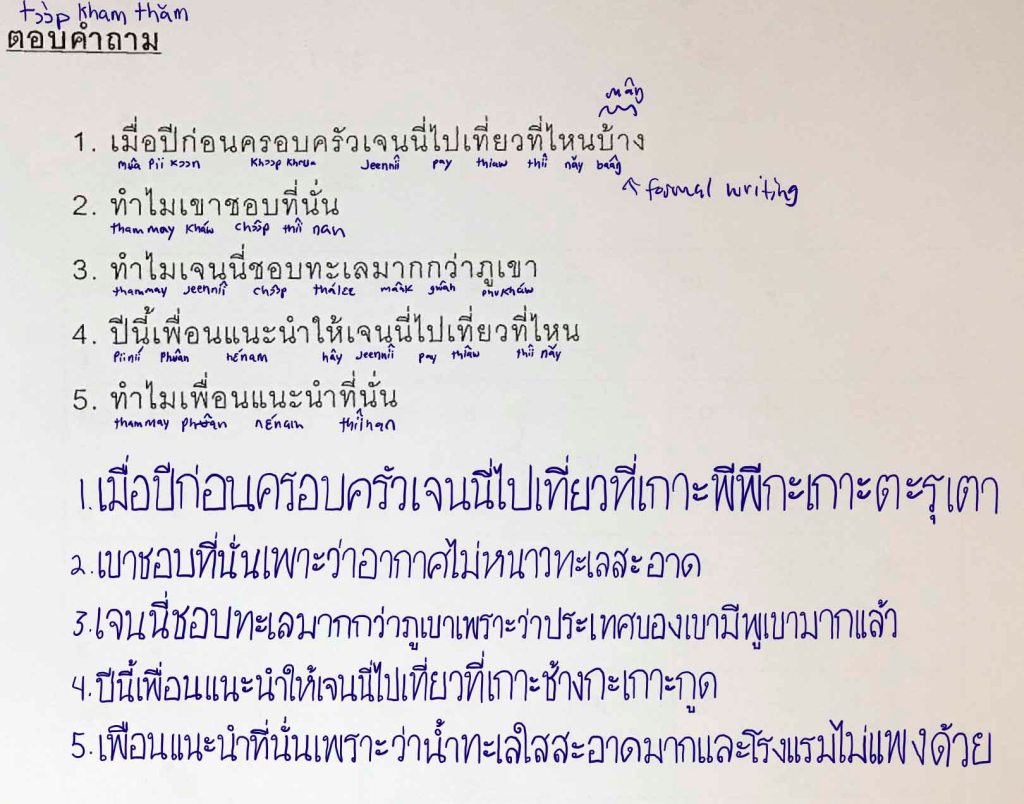 tɔɔ̀p kham thăm
ตอบคำถาม
mâŋ
1. เมื่อปีก่อนครอบครัวเจนนี่ไปเที่ยวที่ไหนบ้าง
mʉ̂a pii kɔɔ̀n khɔɔ̂p khrua jeennîi pay thîaw thîi nǎy bâaŋ
↖ formal writing
2. ทำไมเขาชอบที่นั่น
tham may kháw chɔɔ̂p thîi nan
3. ทำไมเจนนี่ชอบทะเลมากกว่าภูเขา
tham may jeennîi chɔɔ̂p thálee mâak gwàh phu kháw
4. ปีนี้เพื่อนแนะนำให้เจนนี่ไปเที่ยวที่ไหน
pii níi phʉ̂an nɛ́nam hây jeennîi pay thîaw thîi nǎy
5. ทำไมเพื่อนแนะนำที่นั่น
tham may phʉ̂an nɛ́nam thîi nan
1. เมื่อปีก่อนครอบครัวเจนนี่ไปเที่ยวที่เกาะพีพีกะเกาะตะรุเตา
2. เขาชอบที่นั่นเพาะว่าอากาศไม่หนาวทะเลสะอาด
3. เจนนี่ชอบทะเลมากกว่าภูเขาเพราะว่าประเทศของเขามีพูเขามากแล้ว
4. ปีนี้เพื่อนแนะนำให้เจนนี่ไปเที่ยวที่เกาะช้างกะเกาะกูด
5. เพื่อนแนะนำที่นั่นเพราะว่าน้ำทะเลใสสะอาดมากและโรงแรมไม่แพงด้วย